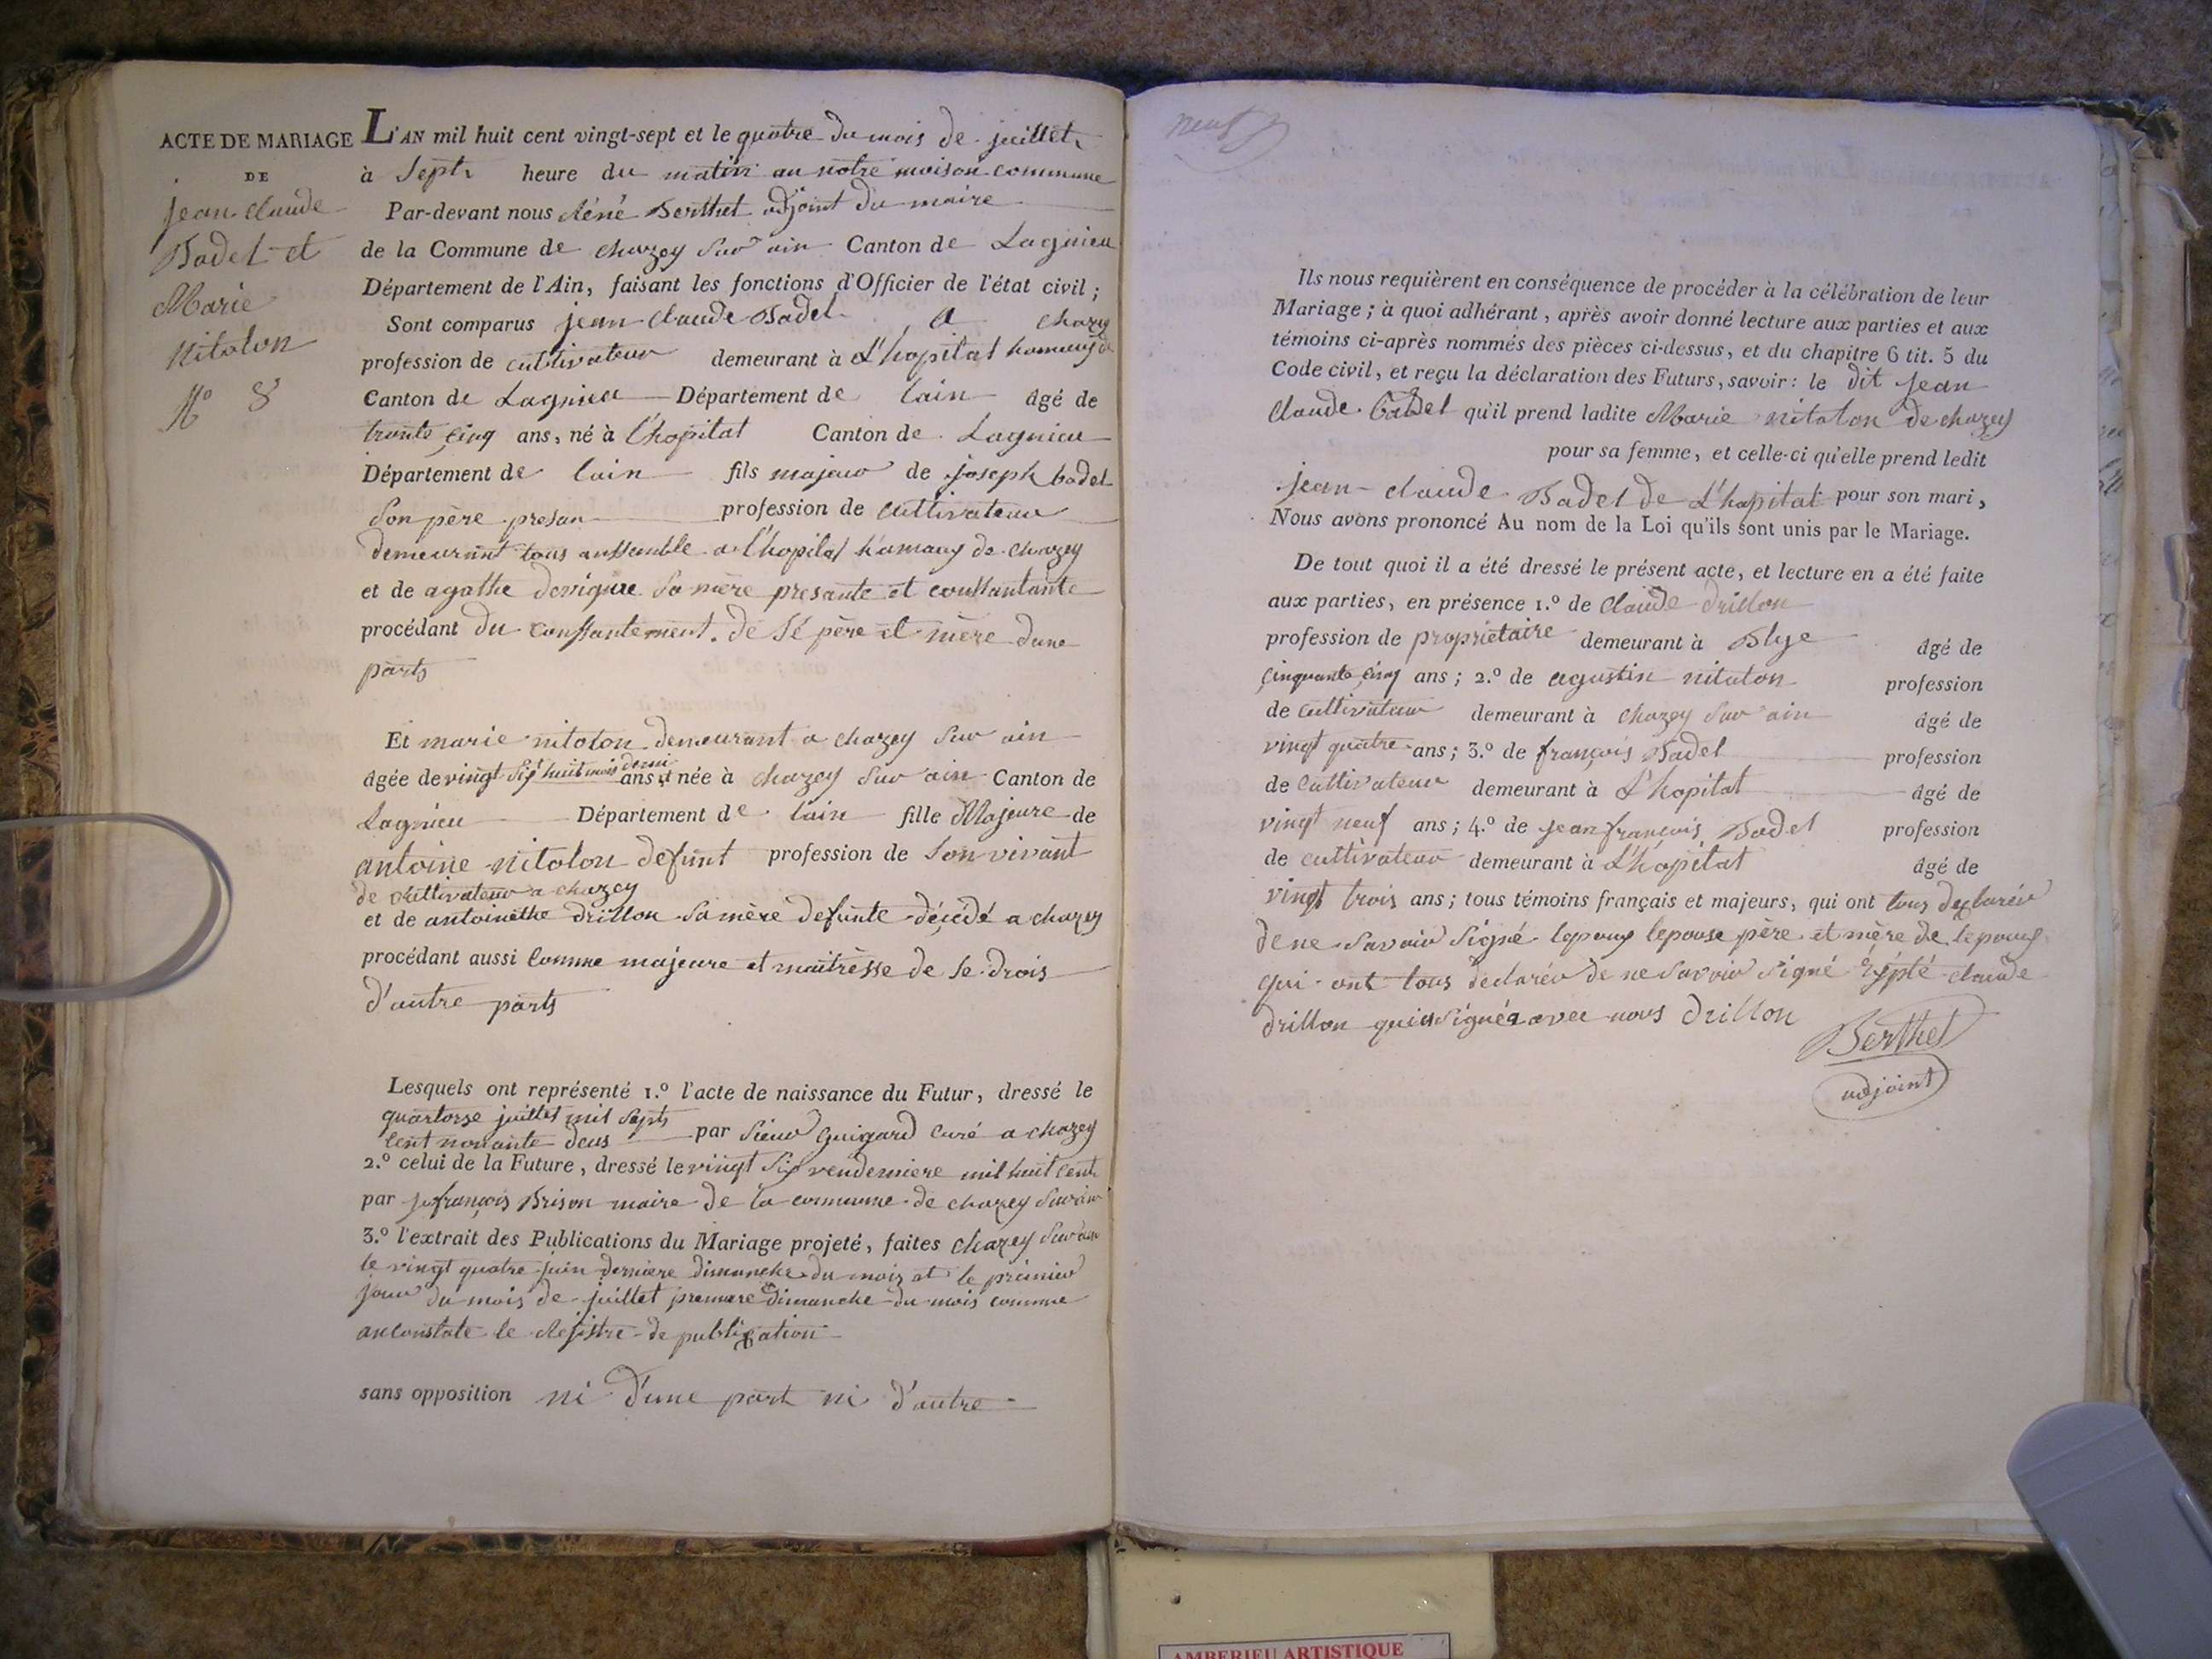 ACTE DE MARIAGE
DE
jean claude
Badel et
Marie
nitolon
N° 8
L'AN mil huit cent vingt-sept et le quatre du mois de juillet
à Sept heure du matin au notre maison commune
Par-devant nous Réné Berthet adjoint du maire
de la Commune de chazey Sur ain Canton de Lagnieu
Département de l'Ain, faisant les fonctions d'Officier de l'état civil ;
Sont comparus jean claude Badel a chazey
profession de cultivateur demeurant à L'hopital hameug de
Canton de Lagnieu Département de lain âgé de
trente cinq ans, né à l'hopital Canton de Lagnieu
Département de lain fils majeur de joseph badel
Son père presan profession de cultivateur
demeurant tous anssemble a l'hopital hamaug de chazey
et de agathe sa mère presante et conssantante
procédant du conssantement de Sé père et mère dune
parts
Et marie nitolon demeurant a chazey Sur ain
huit mois demi
âgée de vingt Six ans et née à chazey Sur ain Canton de
Lagnieu Département de lain fille Majeure de
antoine nitolon defunt profession de Son vivant
de cultivateur a chazey
et de antoinethe drillon Sa mère defunte décédé a chazey
procédant aussi Comme majeure et maitresse de Se drois
d'autre parts
Lesquels ont représenté 1.º l'acte de naissance du Futur, dressé le
quartorse juillet mil Septs
Cent nonante deus par Sieur Guigard curé a chazey
2.º celui de la Future, dressé le vingt Six vendemiere mil huit Cent
par j françois Brison maire de la commune de chazey Sur ain
3.º l'extrait des Publications du Mariage projeté, faites chazey Sur ain
le vingt quatre juin derniere dimanche du mois et le premier
jour du mois de juillet premiere dimanche du mois comme
anconstate le Rejistre de publication
sans opposition ni d'une part ni d'autre
neuf
Ils nous requièrent en conséquence de procéder à la célébration de leur
Mariage ; à quoi adhérant, après avoir donné lecture aux parties et aux
témoins ci-après nommés des pièces ci-dessus, et du chapitre 6 tit. 5 du
Code civil, et reçu la déclaration des Futurs, savoir : le dit jean
claude Badel qu'il prend ladite Marie nitolon de chazey
pour sa femme, et celle-ci qu'elle prend ledit
jean claude Badel de L'hopital pour son mari,
Nous avons prononcé Au nom de la Loi qu'ils sont unis par le Mariage.
De tout quoi il a été dressé le présent acte, et lecture en a été faite
aux parties, en présence 1.º de Claude drillon
profession de propriétaire demeurant à Blye âgé de
cinquante cinq ans ; 2.º de agustin nitolon profession
de cultivateur demeurant à chazey Sur ain âgé de
vingt quatre ans ; 3.º de françois Badel profession
de cultivateur demeurant à L'hopital âgé de
vingt neuf ans ; 4.º de jean françois Badel profession
de cultivateur demeurant à L'hopital âgé de
vingt trois ans ; tous témoins français et majeurs, qui ont tous declarér
de ne Savoir Signé lepoug lepouse père et mère de lepoug
qui ont tous declarér de ne Savoir Signé claude
drillon qui a Signé avec nous Drillon
Berthet
adjoint
AMBERIEU ARTISTIQUE